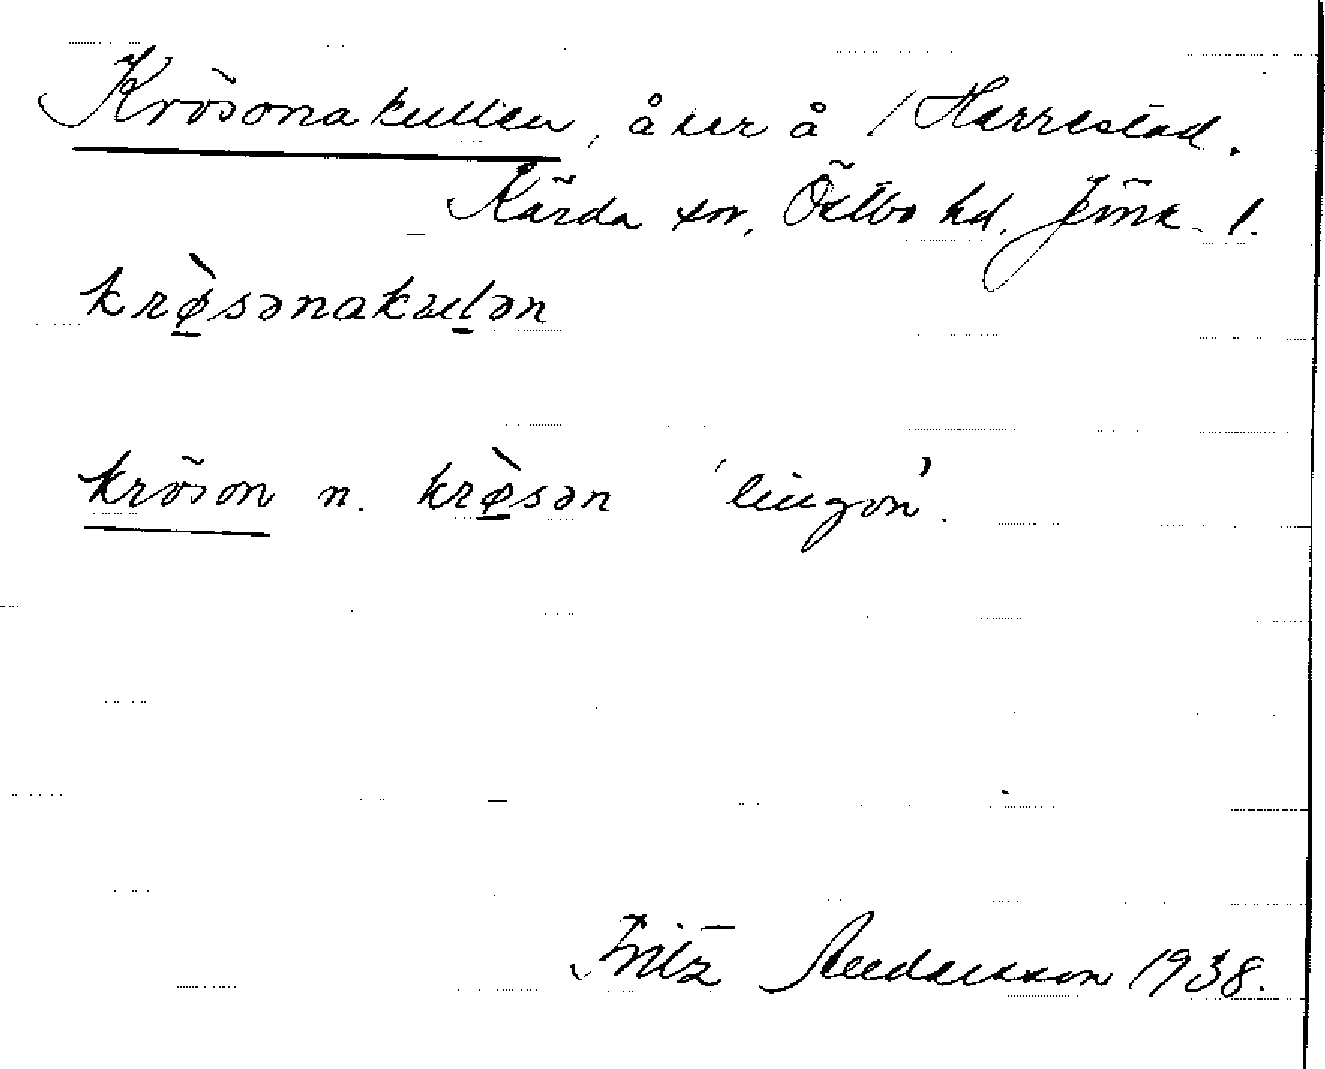 Krösonakullen, åker å 1 Harrestad.
Kärda sn, Östbo hd, Jönk. l.
krø̀sənakulən
kröson n. krø̀sən 'lingon'.
Fritz Andersson 1938.